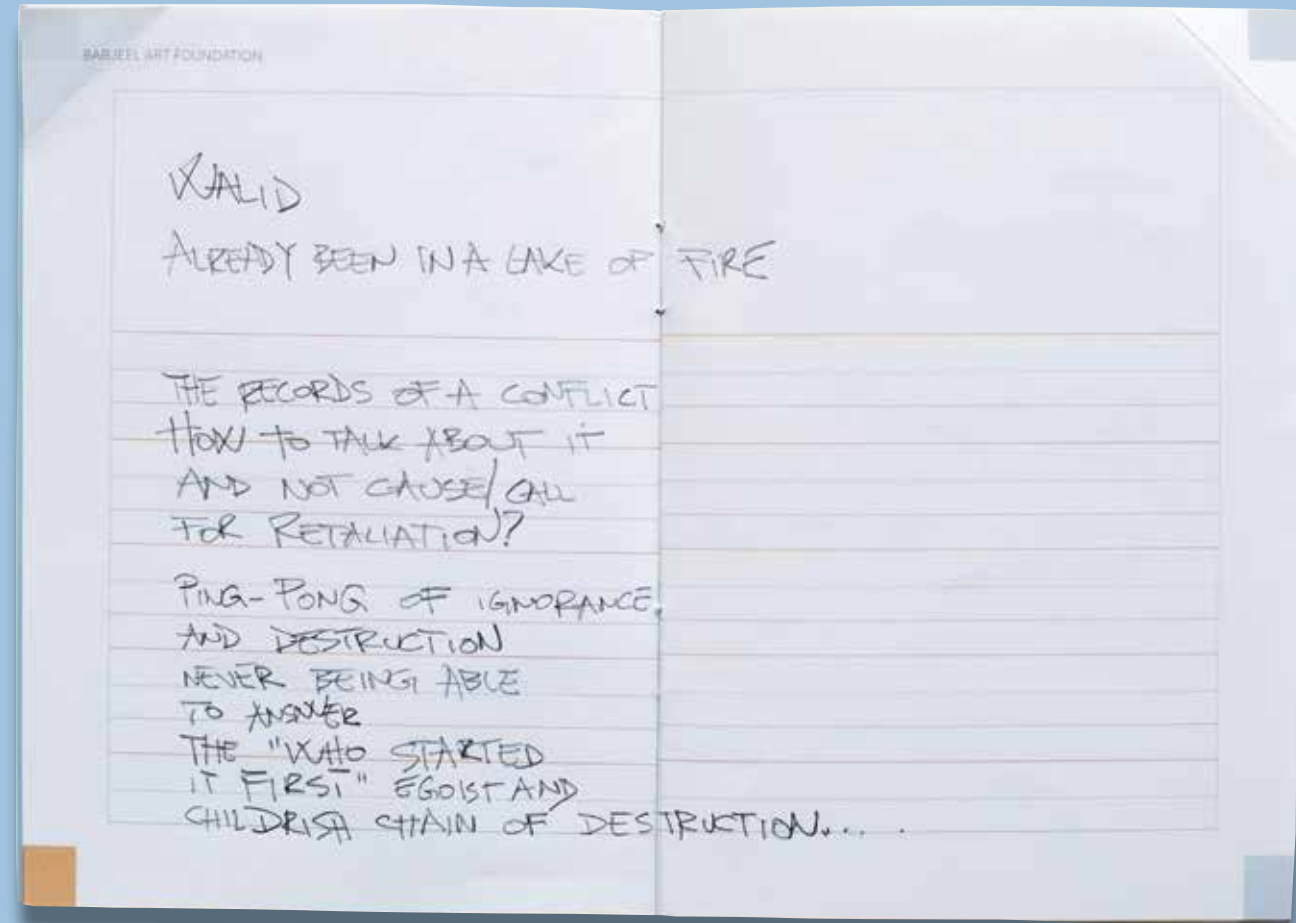 BARJEEL ART FOUNDATION
WALID
ALREADY BEEN IN A LAKE OF FIRE
THE RECORDS OF A CONFLICT
HOW TO TALK ABOUT IT
AND NOT CAUSE/CALL
FOR RETALIATION?
PING-PONG OF IGNORANCE
AND DESTRUCTION
NEVER BEING ABLE
TO ANSWER
THE "WHO STARTED
IT FIRST" EGOIST AND
CHILDRISH CHAIN OF DESTRUCTION....